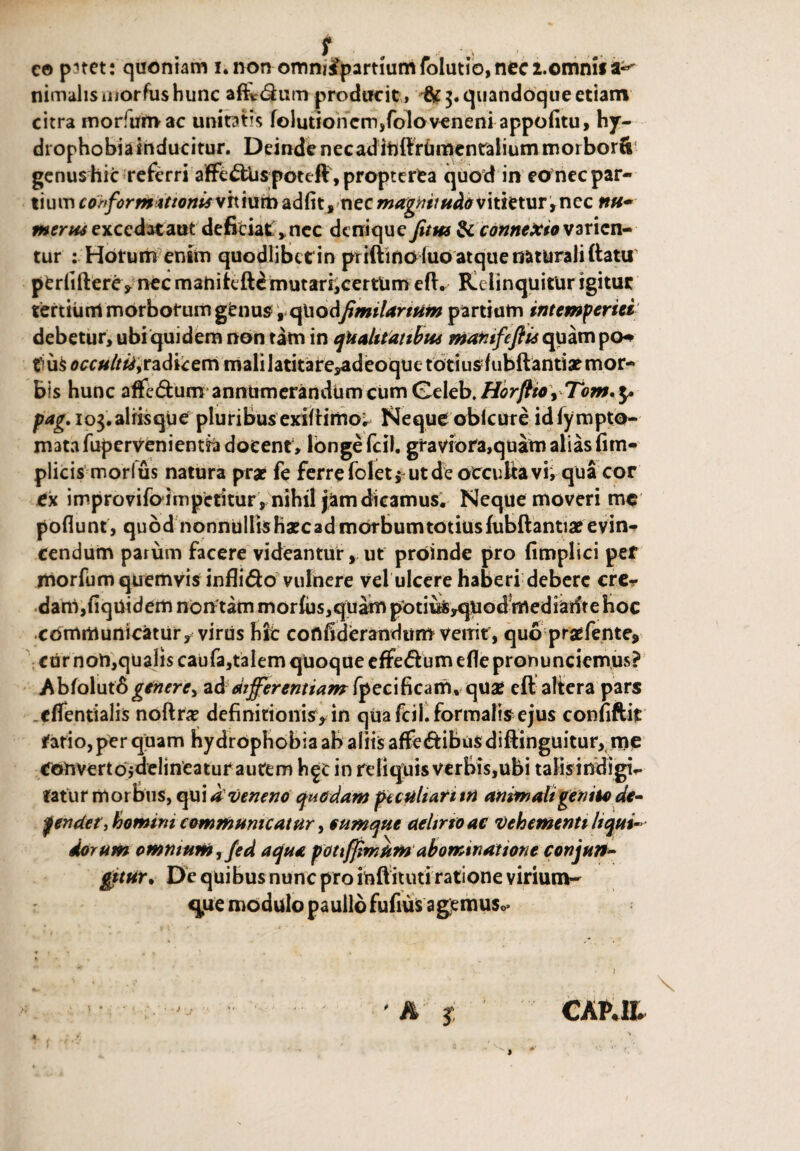 f
eo patet: quoniam 1. non omnispartium ſolutio, nec 2. omnis a-
nimalis morſus hunc affectum producit, & 3. quandoque etiam
citra morſum ac unitatis ſolutionem, ſolo veneni appoſitu, hy-
drophobia inducitur. Deinde nec ad inſtrumentalium morborū
genus hic referri affectus poteſt, propterea quod in eo nec par-
tium conformationis vitium adſit, nec magnitudo vitietur, nec nu-
merus excedat aut deficiat, nec denique ſitus & connexio varien-
tur: Horum enim quodlibet in priſtino ſuo atque naturali ſtatu
perſiſtere, nec manifeſtè mutari, certum eſt. Relinquitur igitur
tertium morborum genus, quod ſimilarium partium intemperiei
debetur, ubi quidem non tàm in qualitatibus manifeſtis quàm po-
tius occultis, radicem mali latitare, adeoque totius ſubſtantiæ mor-
bis hunc affectum annumerandum cum Celeb. Horſtio, Tom. 5.
pag. 103. aliisque pluribus exiſtimo. Neque obſcurè id ſympto-
mata ſupervenientia docent, longè ſcil. graviora, quàm aliàs ſim-
plicis morſus natura præ ſe ferre ſolet; ut de occulta vi, quâ cor
ex improviſo impetitur, nihil jam dicamus. Neque moveri me
poſſunt, quòd nonnullis hæc ad morbum totius ſubſtantiæ evin-
cendum parùm facere videantur, ut proinde pro ſimplici per
morſum quemvis inflicto vulnere vel ulcere haberi debere cre-
dam, ſiquidem non tàm morſus, quàm potius, quod mediante hoc
communicatur, virus hîc conſiderandum venit, quo præſente,
cur non, qualis cauſa, talem quoque effectum eſſe pronunciemus?
Abſolutô genere, ad differentiam ſpecificam, quæ eſt altera pars
eſſentialis noſtræ definitionis, in qua ſcil. formalis ejus conſiſtit
ratio, per quam hydrophobia ab aliis affectibus diſtinguitur, me
converto; delineatur autem hęc in reliquis verbis, ubi talis indigi-
tatur morbus, qui à veneno quodam peculiari in animali genito de-
pendet, homini communicatur, eumque delirio ac vehementi liqui-
dorum omnium, ſed aquæ potiſſimùm abominatione conjun-
gitur. De quibus nunc pro inſtituti ratione virium-
que modulo paullò fuſiùs agemus.
A 3 CAP. II.